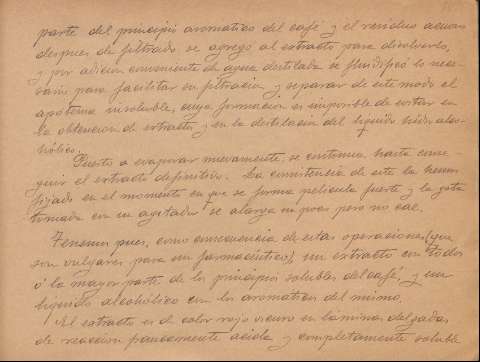 parte del principio aromatico del café y el residuo acuoso
despues de filtrado se agregó al extracto para disolverlo,
y por adicion conveniente de agua destilada se fluidificó lo nece-
sario para facilitar su filtracion y separar de este modo el
apotema insoluble, cuya formacion es imposible de evitar en
la obtencion de extractos y en la destilacion del liquido hidro alco-
hólico.
Puesto a evaporar nuevamente, se continua hasta conse-
guir el extracto definitivo. La consistencia de este la hemos
fijado en el momento en que se forma pelicula fuerte y la gota
tomada con un agitador se alarga un poco pero no cae.
Tenemos pues, como consecuencia de estas operaciones (que
son vulgares para un farmacéutico), un extracto con todos
ó la mayor parte de los principios solubles del café, y un
liquido alcohólico con los aromaticos del mismo.
El extracto es de color rojo oscuro en láminas delgadas,
de reaccion francamente acida y completamente soluble